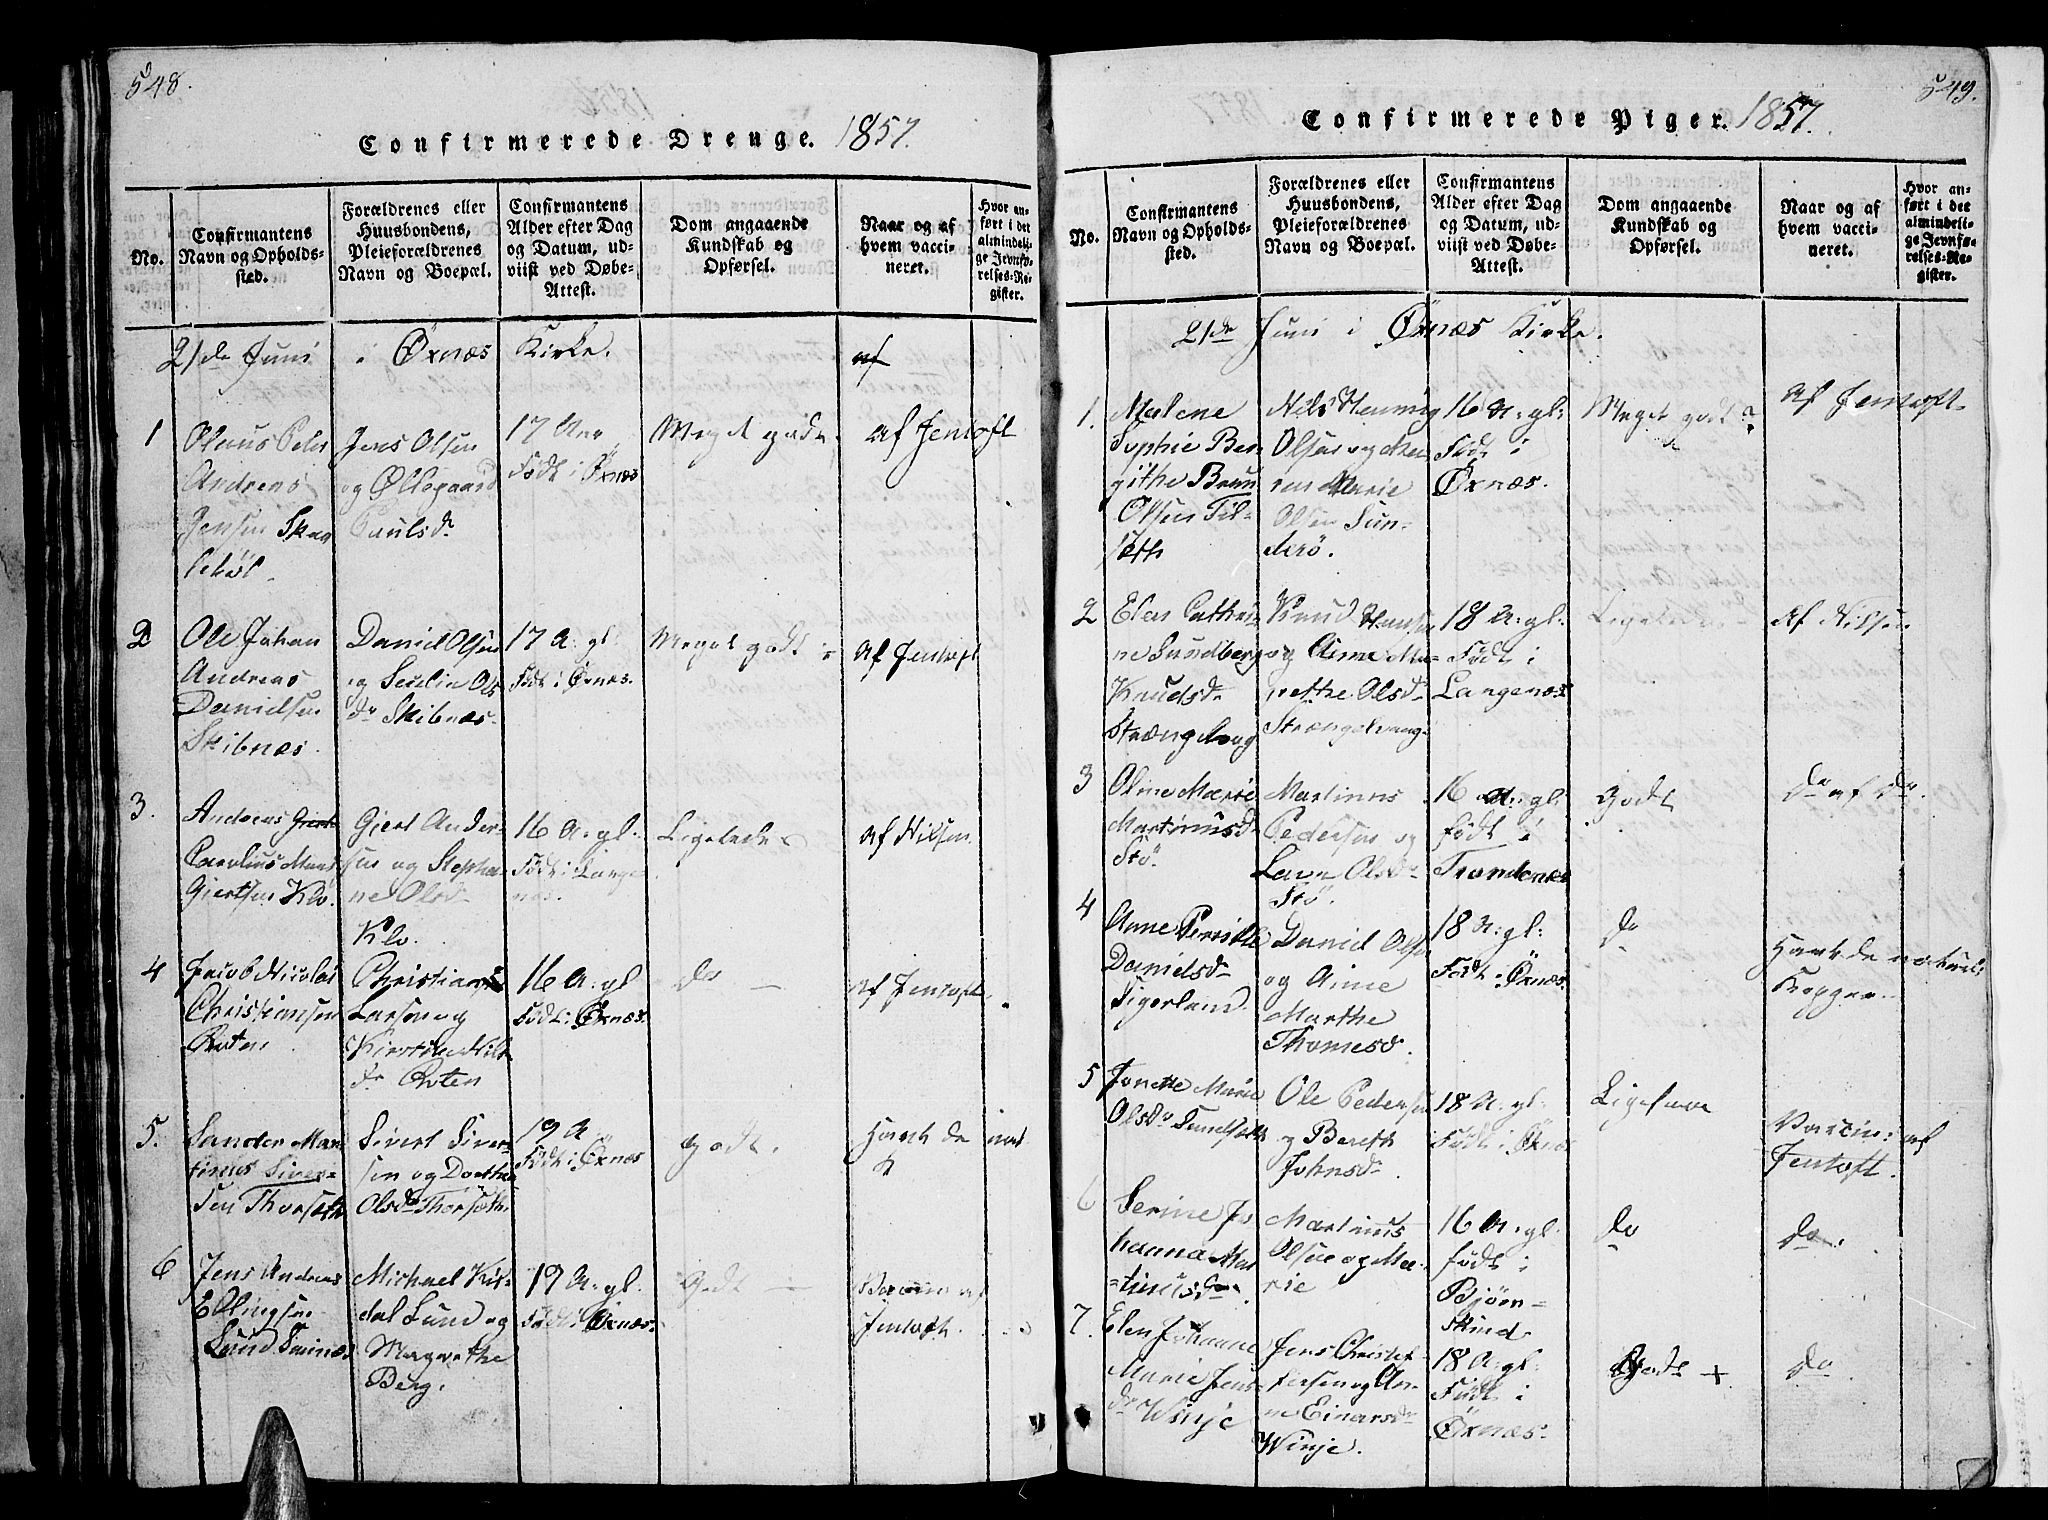 548.
Confirmerede Drenge. 1857.
No.
Confirmantens
Navn og Opholds-
sted.
Forældrenes eller
Huusbondens,
Pleieforældrenes
Navn og Boepæl.
Confirmantens
Alder efter Dag
og Datum, ud-
viist ved Døbe-
Attest.
Dom angaaende
Kundskab og
Opførsel.
Naar og af
hvem vacci-
neret.
Hvor an-
ført i det
almindeli-
ge Jevnfø-
relses-Re-
gister.
21de Juni i Öxnæs Kirke.
af
1
Olaus Peder
Andreas
Jensen
Jens Olsen
og Ollegaard
Paulsdr
17 Aar
Født i Öxnæs
Meget godt.
af Jentoft
2
Ole Johan
Andreas
Danielsen
Skibnæs.
Daniel Olsen
og Serelin Ols
dr Skibnæs
17 A: gl:
Født i Öxnæs.
Meget godt
af Jentoft
3.
Andreas
Carolius
Giertsen Klo.
Giert Ander-
sen og Stepha-
ne Olsdr
Klo.
16 A: gl:
Født i Lange
næs.
Ligeledes
af Nilsen.
4
Jacob Nicolai
Christiansen
Christian
Larsen og
Kirstine Nils
dr
16 A: gl
Født i Öxnæs.
do
af Jentoft
5.
Sander Mar
tinus Siver-
sen Thorsæth
Sivert Siver
sen og Dorthea
Olsdr Thorsæth.
19 A
Født i Öxnæs
godt.
Havt de nat.
K
6
Jens Andreas
Ellingsen
Lund
Michael Kil-
dal Lund og
Magrethe
Berg.
19 A: gl.
Født i Öxnæs.
Godt
Vaccin af
Jentoft.
549.
Confirmerede Piger. 1857.
No.
Confirmantens
Navn og Opholds-
sted.
Forældrenes eller
Huusbondens,
Pleieforældrenes
Navn og Boepæl.
Confirmantens
Alder efter Dag
og Datum, ud-
viist ved Døbe-
Attest.
Dom angaaende
Kundskab og
Opførsel.
Naar og af
hvem vacci-
neret.
Hvor an-
ført i det
almindeli-
ge Jevnfø-
relses-Re-
gister.
21de Juni i Öxnæs Kirke.
1.
Malene
Sophie Ber
githe Bruun
Olsen Til-
sæth
Nils Henning
Olsen og Ka
ren Marie
Olsen Sun-
derö.
16 A: gl:
Født i
Öxnæs.
Meget godt
af Jentoft
2
Elen Cathri-
ne Sundberg
Knudsdr
Strængelvaag
Knud Hansen
og Anne Ma-
grethe Olsdr
Strængelvaag
18 A: gl.
Født i
Langenæs
Ligeledes
af Nilsen
3
Oline Marie
Martinusdr
Stö.
Martinus
Pedersen og
Lava Olsdr
Stö.
16 A: gl:
født i
Trondenæs
Godt
do af do.
4
Anne Pernille
Danielsdr
Tigerland
Daniel Olsen
og Anne
Marthe
Thomesd.
18 A: gl:
Født i Öxnæs.
do
Havt de naturl:
Kopper.
5
Jonette Marie
Olsdr Tunstad
Ole Pedersen
og Bereth
Johnsdr
18 A: gl:
Født i Öxnæs
Ligesaa
Vaccin: af
Jentoft.
6
Serine Jo
hanna Mar
=tinusdr.
Martinus
Olsen og Ma-
rie
16 A: gl.
født i
Bjørn-
skind.
do
do.
7.
Elen Johanne
Marie Jens
dr Winje
Jens Christof-
fersen og An-
ne Einarsdr
Winje.
18 A: gl:
Født i
Öxnæs.
Godt +
do